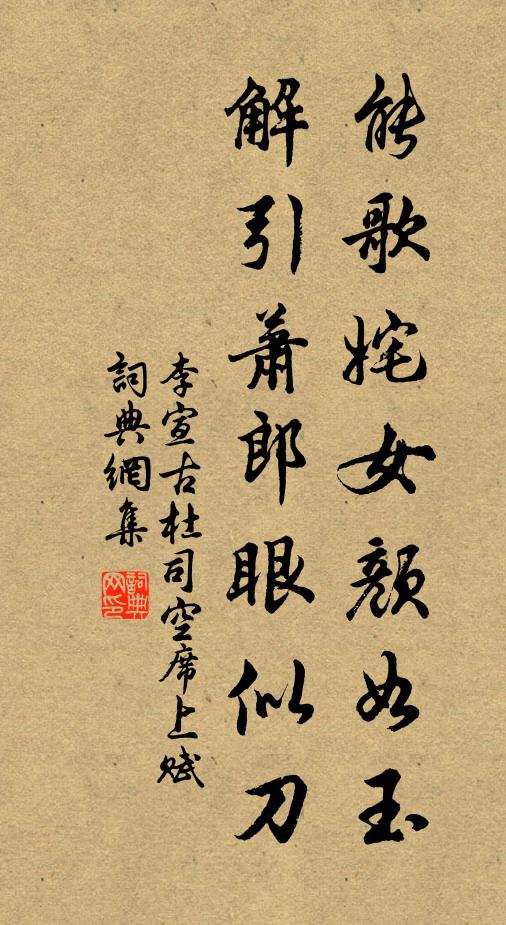 能歌姹女顏如玉
解引蕭郎眼似刀
李宣古杜司空席上賦
詞典網集
詞典网印